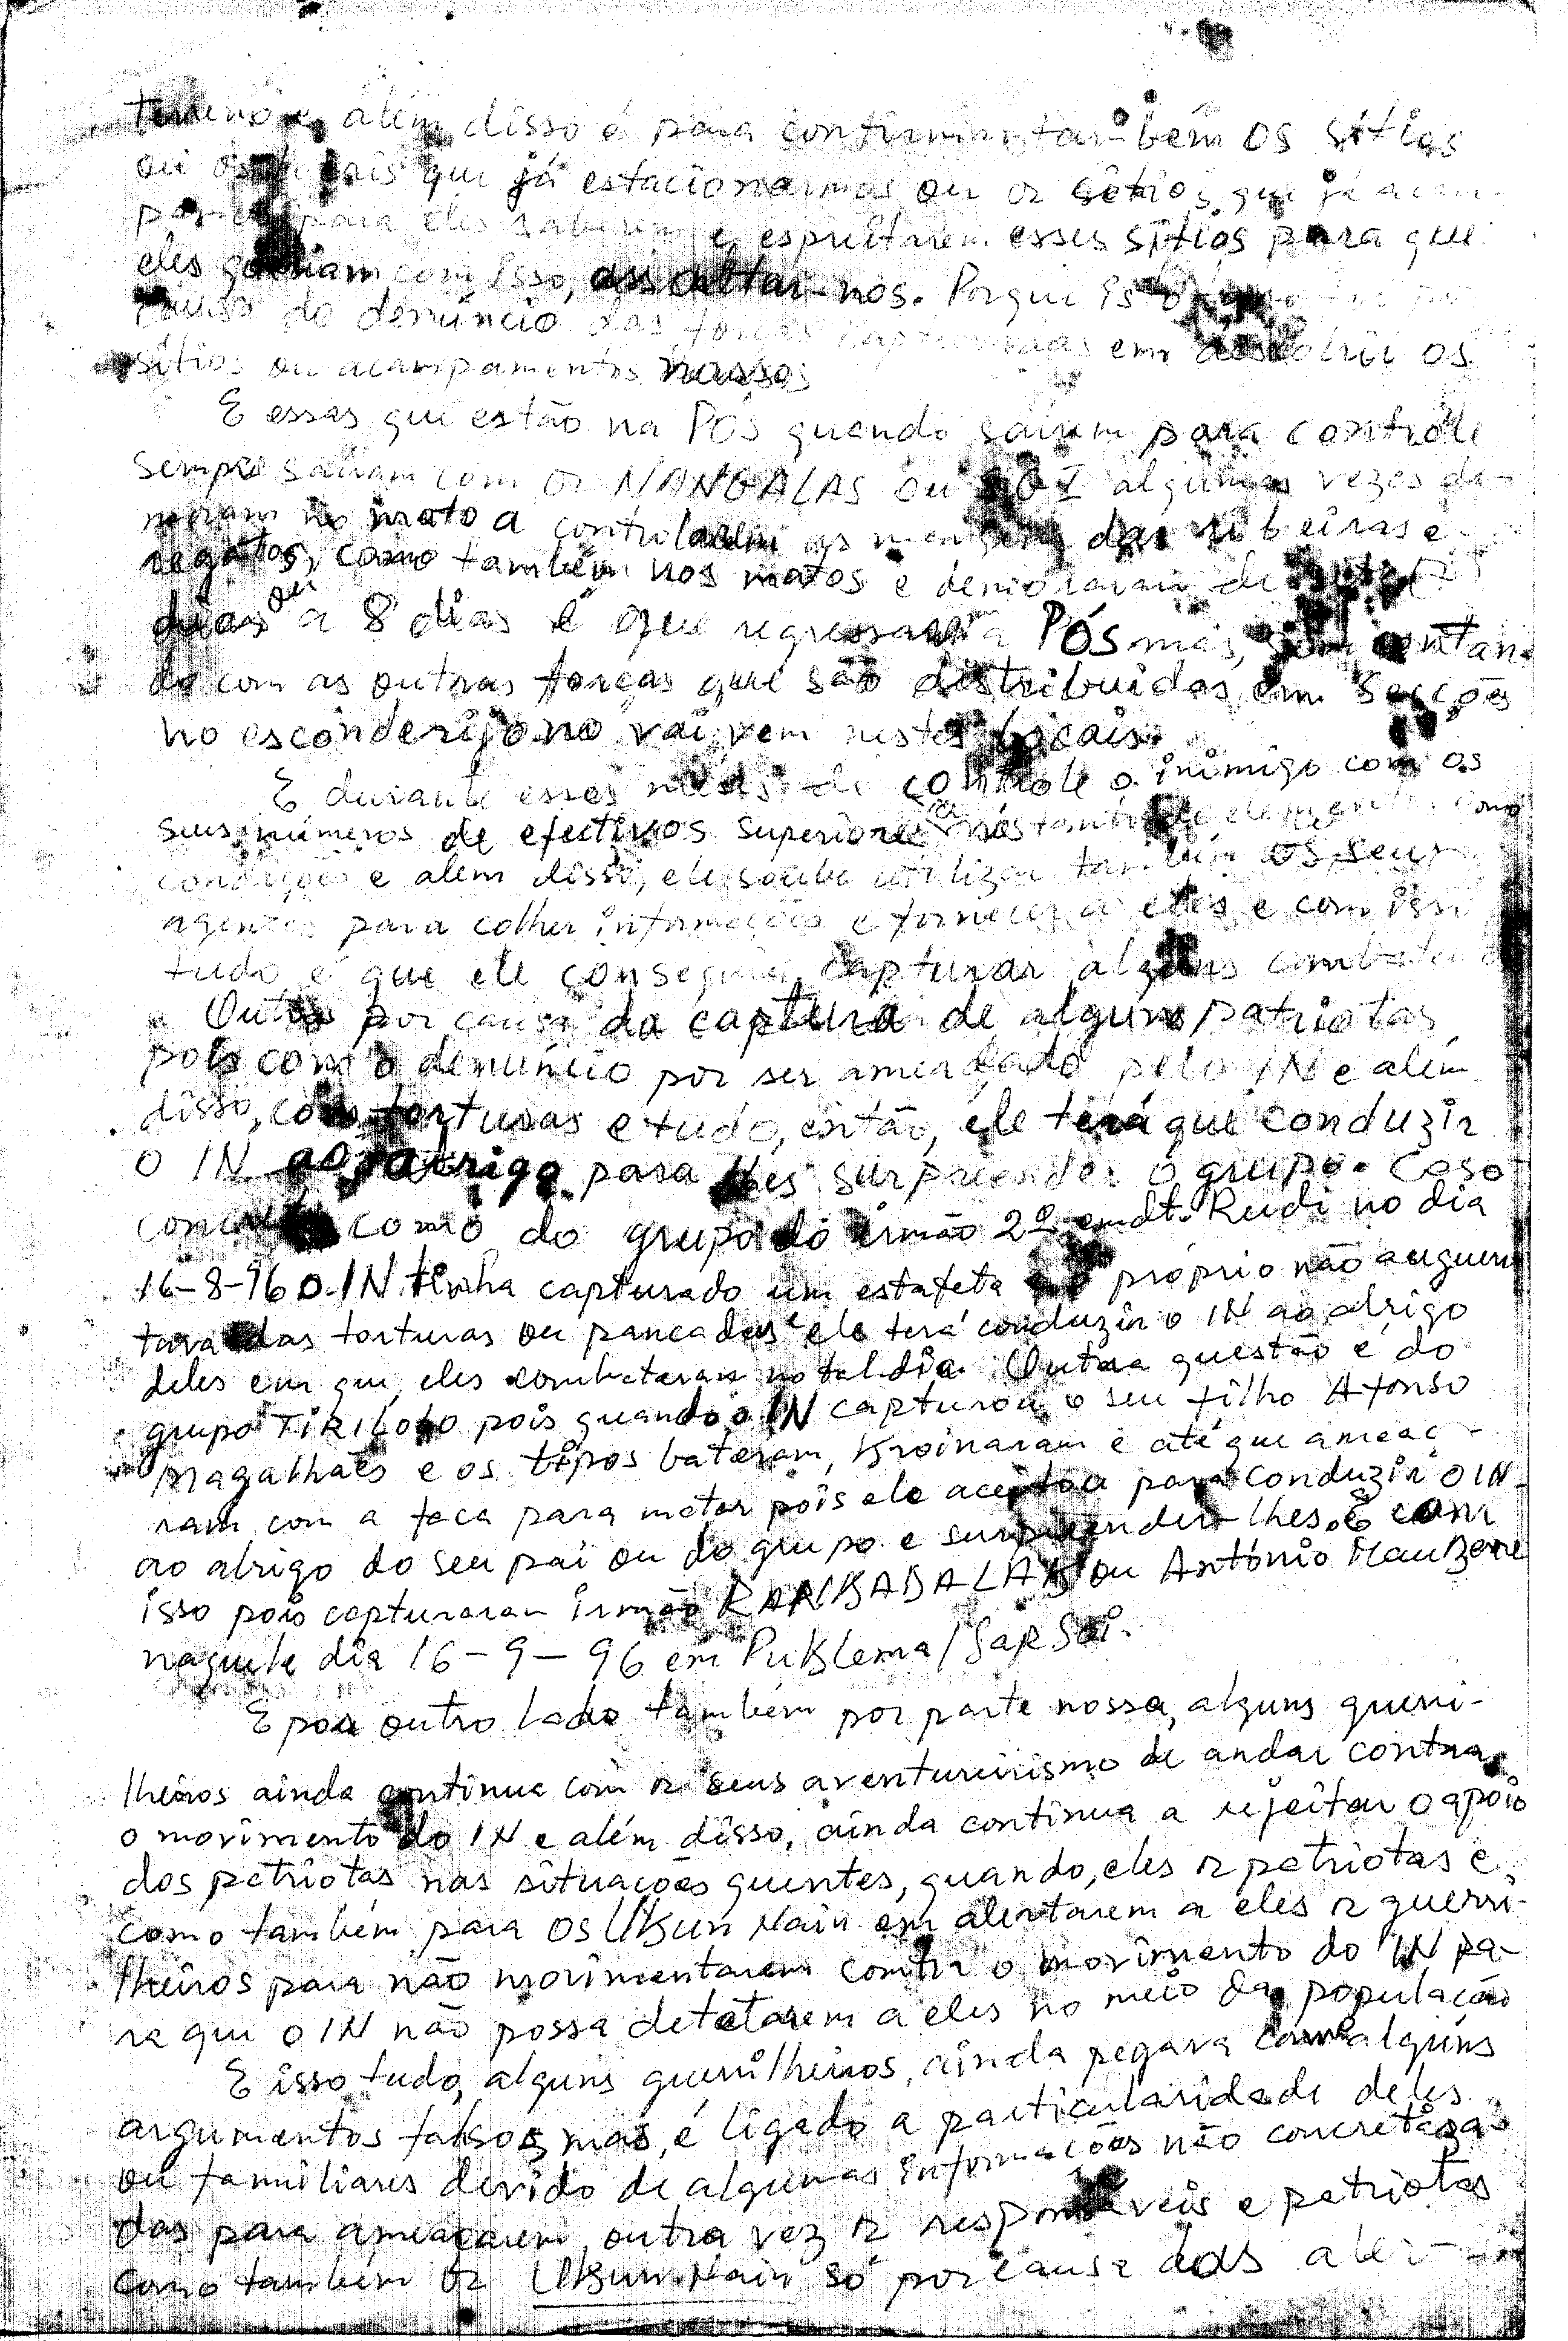 terreno e, além disso é para confirmar também os sítios
ou os locais que já estacionarmos ou os sítios que já acam-
par para eles saberem e espreitarem esses sítios para que
eles com isso, assaltar-nos. Porque isto
causa do denúncio das forças capturadas em descobrir os
sítios ou acampamentos nossos
E essas que estão na Pós quando sairem para controle
sempre sairam com os NANGALAS ou algumas vezes de-
moram no mato a controlarem as margens das ribeiras e
regatos, como também nos matos e demoraram de sete (7)
dias ou a 8 dias é que regressaram a Pós mas, sem contan-
do com as outras forças que são distribuidas em secções
no esconderijo no vai vem nestes locais.
E durante esses meses de controle o inimigo com os
seus números de efectivos superiores a nós tanto de elementos como
condições e alem disso, ele soube utilizar também os seus
agentes para colher informações e fornecer a eles e com isso
tudo é que ele conseguiu capturar alguns combatentes
Outras por causa da captura de alguns patriotas
pois com o denúncio por ser ameaçado pelo IN e além
disso, com torturas e tudo, então, ele terá que conduzir
o IN ao abrigo para lhes surpreender o grupo. Caso
concreto como do grupo do irmão 2º cmdt. Rudi no dia
16-8-96 o IN tinha capturado um estafeta próprio não auguen
tara das torturas ou pancadas e ele terá conduzir o IN ao abrigo
deles em que eles combateram no tal dia. Outra questão é do
grupo TIRILOLO pois quando o IN capturou o seu filho Afonso
Magalhães e os tipos bateram, e até que ameaç-
ram com a faca para matar pois ele aceitou para conduzir o IN
ao abrigo do seu pai ou do grupo e surpreender-lhes. E com
isso pois capturaram irmão RANBADALAK ou António
naquele dia 16-9-96 em
E por outro lado também por parte nossa, alguns guerri-
lheiros ainda continua com os seus aventureirismo de andar contra
o movimento do IN e além disso, ainda continua a rejeitar o apoio
dos patriotas nas situações quentes, quando, eles os patriotas e
como também para os Ukun Nain em alertarem a eles os guerri-
lheiros para não movimentarem contra o movimento do IN pa-
ra que o IN não possa detetarem a eles no meio da população
E isso tudo, alguns guerrilheiros, ainda pegava com alguns
argumentos falsos, mas, é ligado a particularidade deles
ou familiares devido de algumas informações não concretiza-
das para ameaçarem outra vez os responsáveis e patriotas
como também os Ukun Nain só por causa das aler-